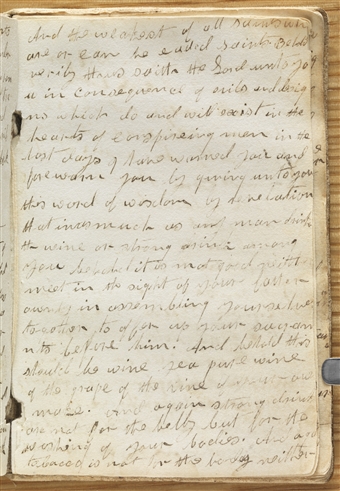 And the weakest of all saints who
are or can be called saints Behold
verily thus saith the Lord unto you
in consequence of evils and desig
ns which do and will exist in the
hearts of conspireing men in the
last days I have warned you and
forewarn you by giving unto you
this word of wisdom by revelation
that inasmuch as any man drink
th wine or strong drink among
you behold it is not good neith
meet in the sight of your Father
only in assembling yourselves
together to offer up your sacram
nts before him. And behold this
should be wine yea pure wine
of the grape of the vine of your own
make. And again strong drinks
are not for the belly but for the
washing of your bodies. And again
tobacco is not for the body neither